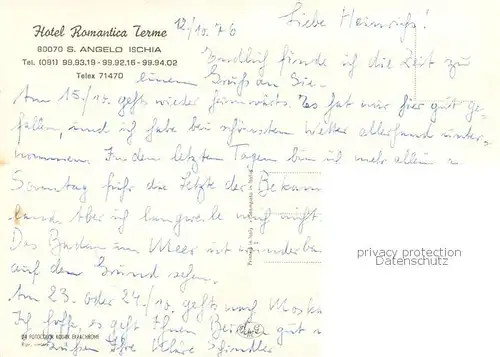 Hotel Romantica Terme
80070 S. ANGELO ISCHIA
Tel. (081) 99.93.19 - 99.92.16 - 99.94.02
Telex 71470
12/10.76
Liebe Heinrichs!
Endlich finde ich die Zeit zu
einem Gruß an Sie.
Am 15./10. gehts wieder heimwärts. Es hat mir hier gut ge-
fallen, und ich habe bei schönstem Wetter allerhand unter-
nommen. In den letzten Tagen bin ich mehr allein
Sonntag fuhr die letzte der Bekann
Aber ich langweile mich nicht
Das Baden im Meer ist wunderba
auf den Grund sehen.
Am 23. oder 24./10. gehts nach Moska
Ich hoffe, es geht Ihnen Beiden gut
Ihre Kläre Schindler
privacy protection
Datenschutz